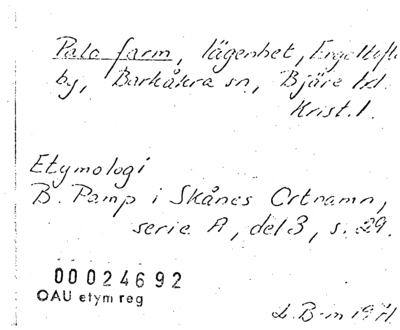 Palo farm, lägenhet, Engeltofta
by, Barkåkra sn, Bjäre hd.
Krist. l.
Etymologi
B. Pamp i Skånes Ortnamn,
serie A, del 3, s. 29.
00024692
OAU etym reg
B-m 1971